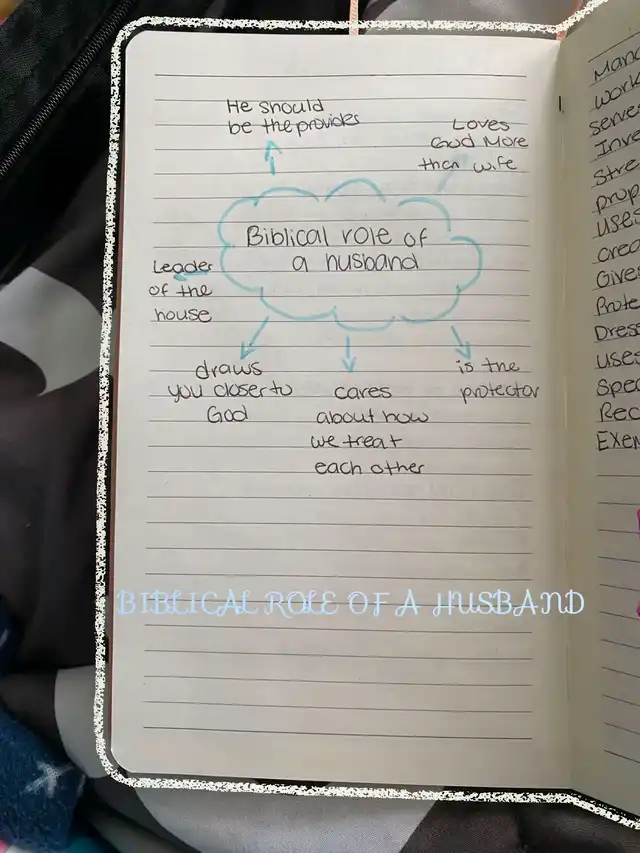 He should
be the provides
Loves
God More
then wife
Biblical role of
a husband
Leader
of the
house
draws
you closer to
God
cares
about how
we treat
each other
is the
protector
BIBLICAL ROLE OF A HUSBAND
work
serve
Gives
Dress
uses